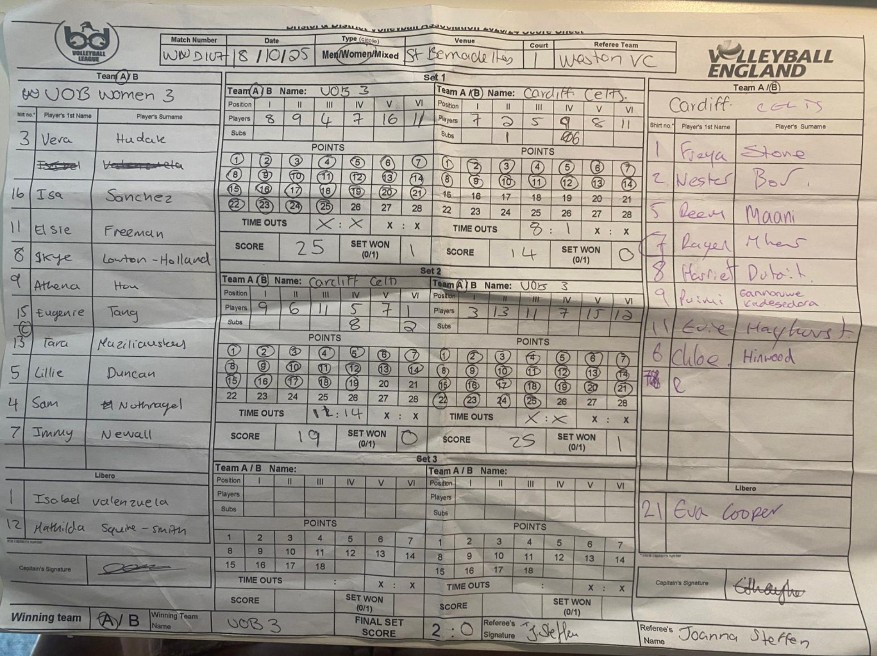 Bristol & District Volleyball Association 2023/24 Score Sheet
bd VOLLEYBALL LEAGUE
Match Number Date Type (circle) Venue Court Referee Team
18/10/25 Men/Women/Mixed St Bernadettes 1 Weston VC
VOLLEYBALL ENGLAND
Team A/B
UOB Women 3
Shirt no. Player's 1st Name Player's Surname
3 Vera Hudak
16 Isa Sanchez
11 Elsie Freeman
8 Skye Lowton-Holland
9 Athena Hou
15 Eugenie Tang
13 Tara
5 Lillie Duncan
4 Sam Nothnagel
7 Immy Newall
Libero
1 Isobel Valenzuela
12 Mathilda Squire-Smith
Captain's Signature
Set 1
Team A/B Name: UOB 3
Position I II III IV V VI
Players 8 9 4 7 16 11
Subs
POINTS
1 2 3 4 5 6 7
8 9 10 11 12 13 14
15 16 17 18 19 20 21
22 23 24 25 26 27 28
TIME OUTS X : X X : X
SCORE 25 SET WON (0/1) 1
Team A/B Name: Cardiff Celts
Position I II III IV V VI
Players 7 2 5 9 8 11
Subs 1 6
POINTS
1 2 3 4 5 6 7
8 9 10 11 12 13 14
16 17 18 19 20 21
22 23 24 25 26 27 28
TIME OUTS 8 : 1 X : X
SCORE 14 SET WON (0/1) 0
Set 2
Team A/B Name: Cardiff Celts
Position I II III IV V VI
Players 9 6 11 5 7 1
Subs 8 2
POINTS
1 2 3 4 5 6 7
8 9 10 11 12 13 14
15 16 17 18 19 20 21
22 23 24 25 26 27 28
TIME OUTS 12 : 14 X : X
SCORE 19 SET WON (0/1) 0
Team A/B Name: UOB 3
Position I II III IV V VI
Players 3 13 11 7 15 12
Subs
POINTS
1 2 3 4 5 6 7
8 9 10 11 12 13 14
15 16 17 18 19 20 21
22 23 24 25 26 27 28
TIME OUTS X : X X : X
SCORE 25 SET WON (0/1) 1
Set 3
Team A/B Name:
Position I II III IV V VI
Players
Subs
POINTS
1 2 3 4 5 6 7
8 9 10 11 12 13 14
15 16 17 18
TIME OUTS : X : X
SCORE SET WON (0/1)
Team A/B Name:
Position I II III IV V VI
Players
Subs
POINTS
1 2 3 4 5 6 7
8 9 10 11 12 13 14
15 16 17 18
TIME OUTS : X : X
SCORE SET WON (0/1)
Team A/B
Cardiff Celts
Shirt no. Player's 1st Name Player's Surname
1 Freya Stone
2
5 Reem Maani
7
8 Harriet Dutoit
9
11 Evie Mayhurst
6 Chloe Hinwood
Libero
21 Eva Cooper
Captain's Signature
Winning team A/B Winning Team Name UOB 3 FINAL SET SCORE 2 : 0 Referee's Signature J Steffen Referee's Name Joanna Steffen